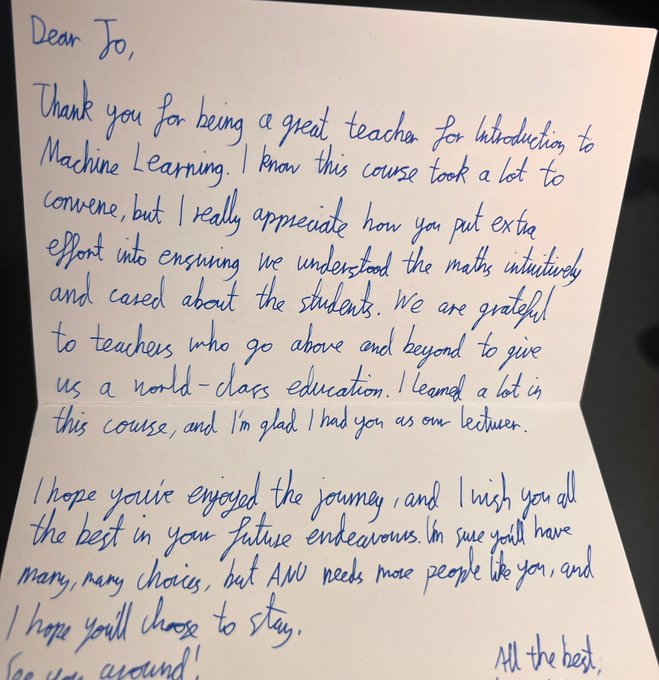 Dear Jo,
Thank you for being a great teacher for Introduction to
Machine Learning. I know this course took a lot to
convene, but I really appreciate how you put extra
effort into ensuring we understood the maths intuitively
and cared about the students. We are grateful
to teachers who go above and beyond to give
us a world-class education. I learned a lot in
this course, and I'm glad I had you as our lecturer.
I hope you've enjoyed the journey, and I wish you all
the best in your future endeavours. I'm sure you'll have
many, many choices, but ANU needs more people like you, and
I hope you'll choose to stay.
See you around!
All the best,